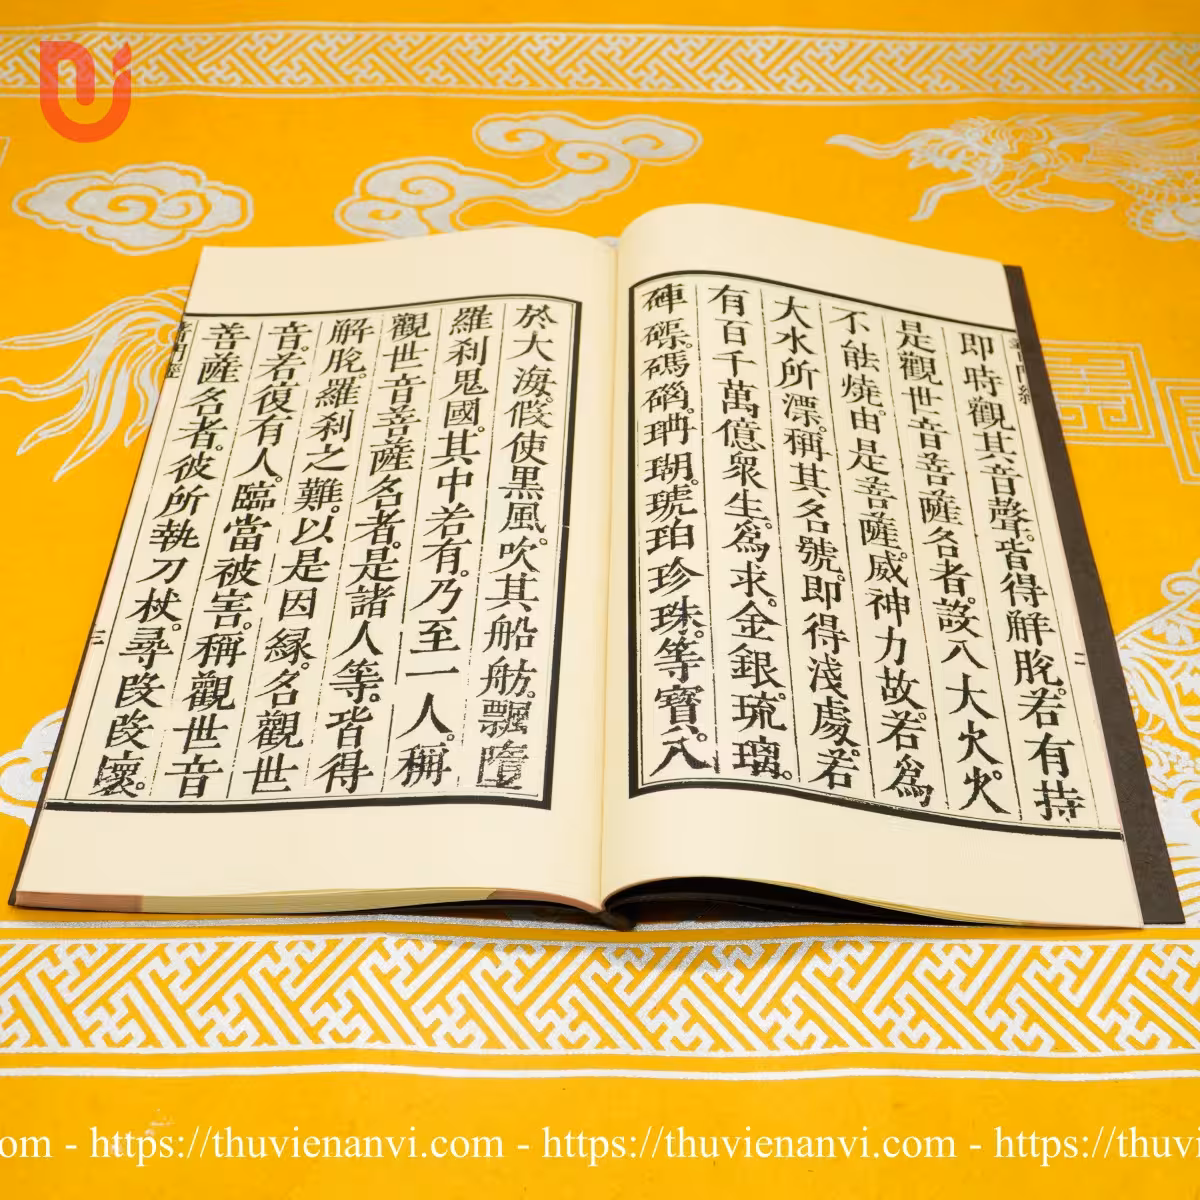 即時觀其音聲。皆得解脫。若有持
是觀世音菩薩名者。設入大火。火
不能燒。由是菩薩威神力故。若爲
大水所漂。稱其名號。即得淺處。若
有百千萬億衆生。爲求。金銀。琉璃。
硨磲。碼碯。珊瑚。琥珀珍珠。等寶。入
於大海。假使黑風。吹其船舫。飄墮
羅剎鬼國。其中若有。乃至一人。稱
觀世音菩薩名者。是諸人等。皆得
解脫。羅剎之難。以是因緣。名觀世
音。若復有人。臨當被害。稱觀世音
菩薩名者。彼所執刀杖。尋段段壞。
普門經
三
om - https://thuvienanvi.com - https://thuvienanvi.com - https://thuvi